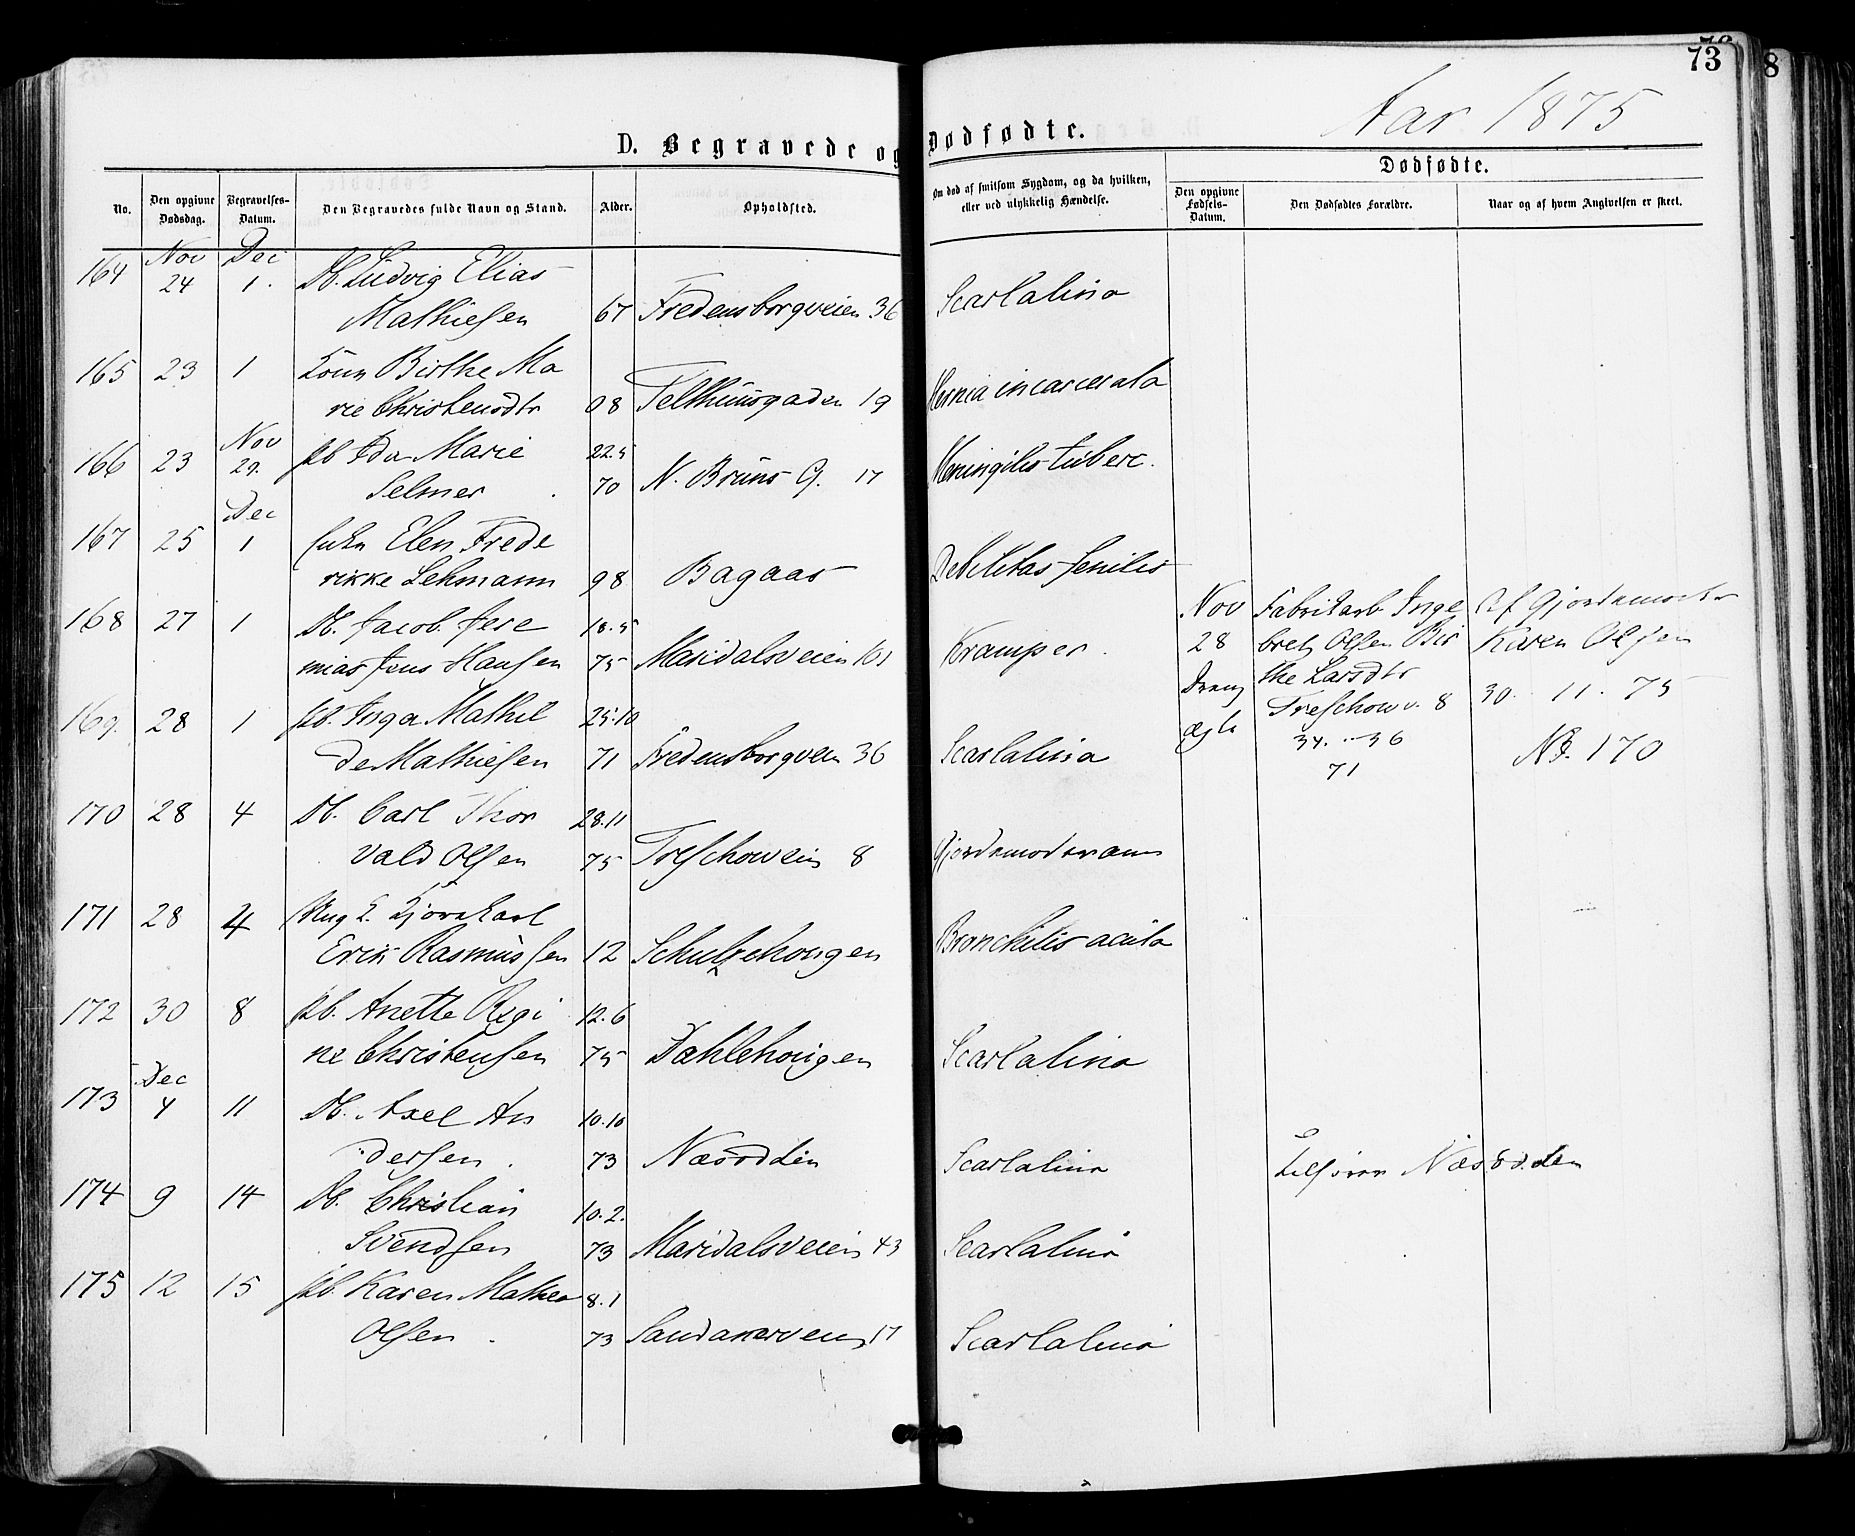 73
Aar 1875
D. Begravede og Dødfødte.
No.
Den opgivne Dødsdag.
Begravelses-Datum.
Den Begravedes fulde Navn og Stand.
Alder.
Opholdsted.
Om død af smitsom Sygdom, og da hvilken, eller ved ulykkelig Hændelse.
Dødfødte.
Den opgivne Fødsels-Datum.
Den Dødfødtes Forældre.
Naar og af hvem Angivelsen er skeet.
Nov Dec
164 24 1. Db. Ludvig Elias
Mathiesen 67 Fredensborgveien 36 Scarlatina
165 23 1 Birthe Ma
rie Christensdtr 08 Telthusgaden 19 Hernia incarcerata
Nov
166 23 29. pb Ida Marie 22.5
Selmer 70 N. Bruns G. 17 Meningitis tuberc.
Dec
167 25 1 Elen Frede
rikke Lehmann 98 Bagaas Debilitas senilis
168 27 1 Db. Jacob Jere 18.5
mias Jens Hansen 75 Maridalsveien 101 Kramper.
169. 28 1 pb. Inga Mathil 25.10
de Mathiesen 71 Fredensborgveien 36 Scarlatina
170 28 4 Db. Carl Thor 28.11
vald Olsen 75 Treschowveien 8
171 28 4 Ung K.
Erik Rasmussen 12 Schultzehougen Bronchitis acuta
172 30 8 pb. Anette Regi 12.6
ne Christensen 75 Dahlehougen Scarlatina
Dec
173 4 11 Db. Axel An 10.10
dersen. 73 Næsodden Scarlatina
174 9 14 Db. Christian 10.2.
Svendsen 73 Maridalsveien 43 Scarlatina
175 12 15 pb. Karen Mathea 8.1
Olsen. 73 Sandakerveien 17 Scarlatina
Nov Fabrikarb. Inge Af Gjordemoder
28 bret Olsen Bir Karen Olsen
Dreng the Larsdtr
Treschowv. 8 30. 11. 75
ægte 34. - 36
71 No. 170
Næsodden